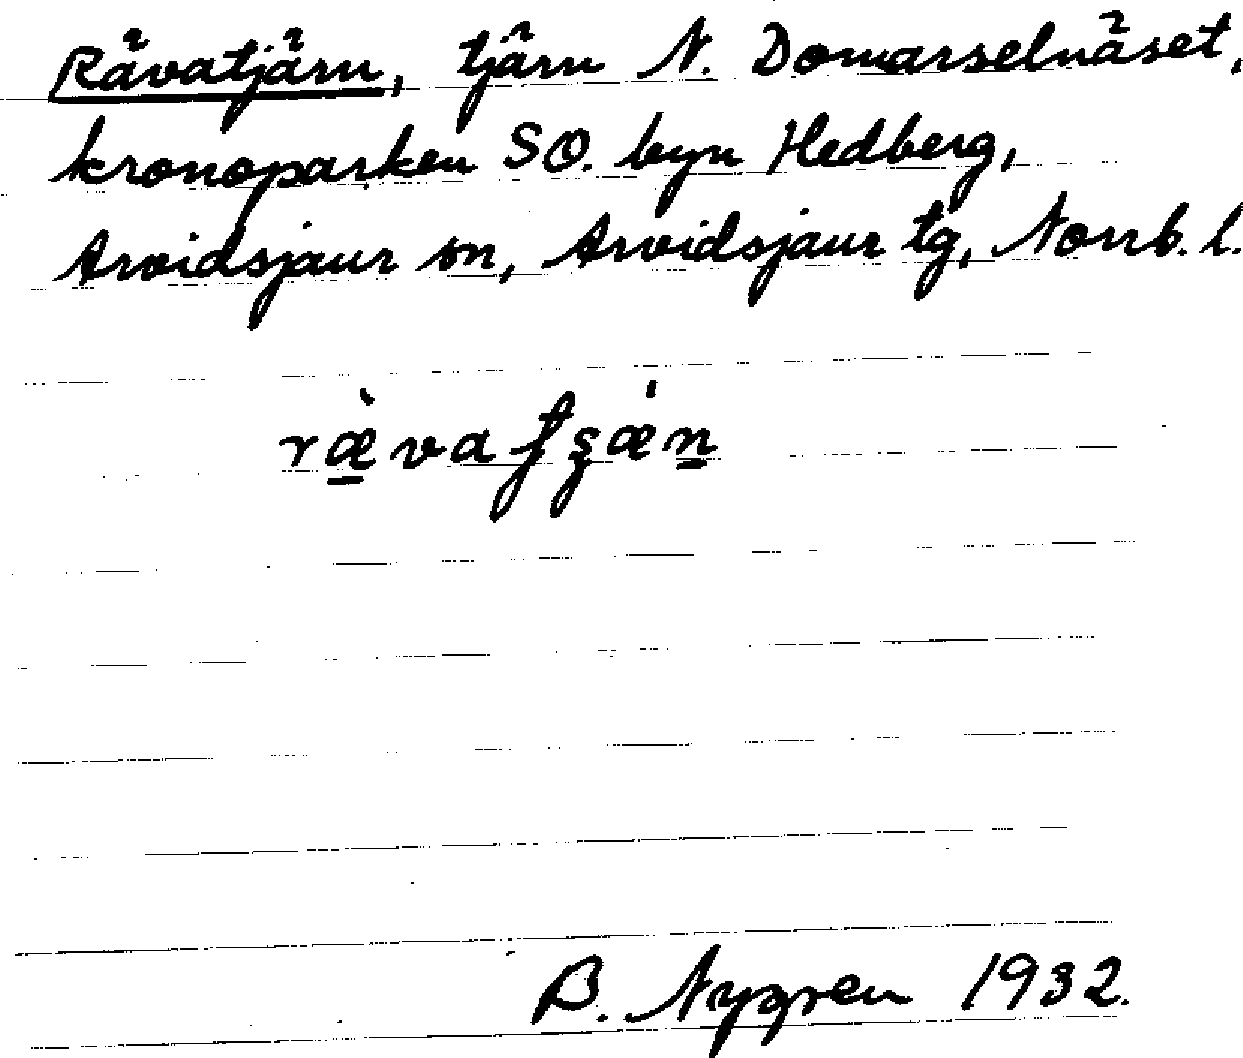 Rävatjärn, tjärn N. Domarselnäset,
kronoparken SO. byn Hedberg,
Arvidsjaur sn, Arvidsjaur tg, Norrb. l.
B. Nygren 1932.